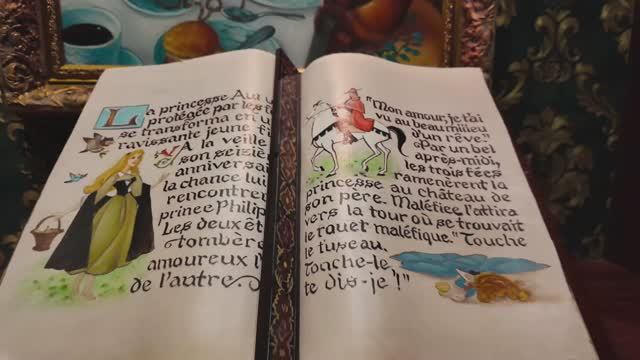 La princesse Au
protégée par les
se transforma en u
ravissante jeune fi
A la veille
son seiziè
anniversai
la chance lui
rencontrer
prince Philip
Les deux êt
tombère
amoureux l'
de l'autre.
"Mon amour, je t'ai
vu au beau milieu
d'un rêve."
Par un bel
après-midi,
les trois fées
ramenèrent la
princesse au château de
son père. Maléfice l'attira
vers la tour où se trouvait
le rouet maléfique." Touche
le fuseau.
Touche-le,
te dis-je!"